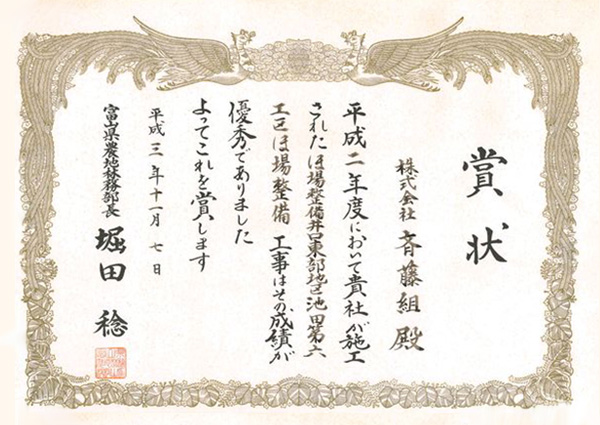 賞状
株式会社 斉藤組 殿
平成二年度において貴社が施工
されたほ場整備井口東部地区池田第六
工区ほ場整備 工事はその成績が
優秀でありました
よってこれを賞します
平成三年十一月七日
富山県農地林務部長 堀田 稔